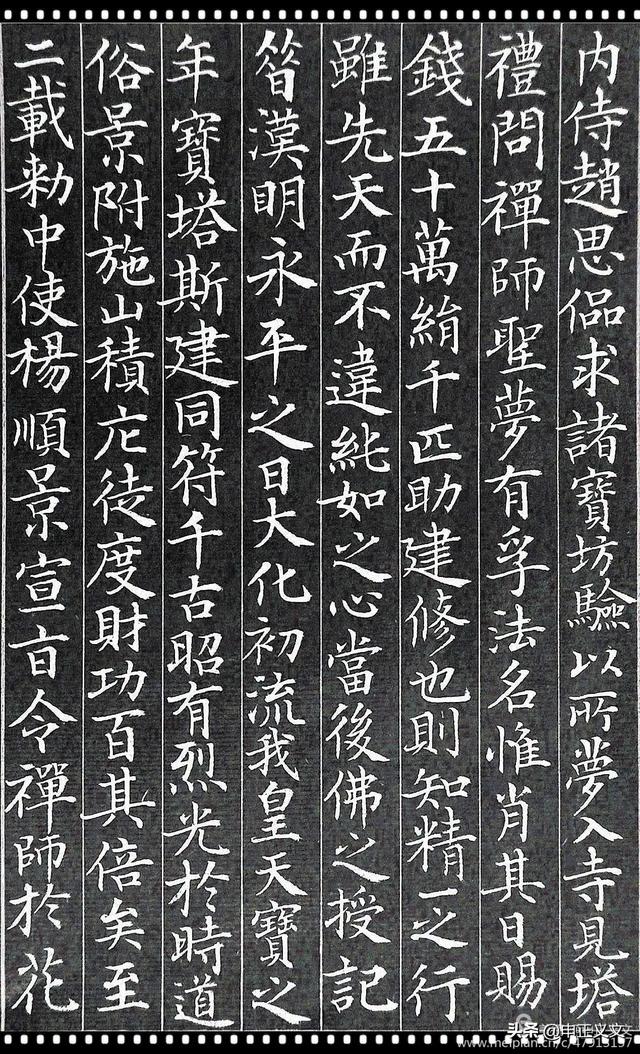 内侍趙思偘求諸寶坊驗以所夢入寺見塔
禮問禪師聖夢有孚法名惟肖其日賜
錢五十萬絹千匹助建修也則知精一之行
雖先天而不違純如之心當後佛之授記
昔漢明永平之日大化初流我皇天寶之
年寶塔斯建同符千古昭有烈光於時道
俗景附施山積庀徒度財功百其倍矣至
二載勑中使楊順景宣旨令禪師於花
头条 @申正义文